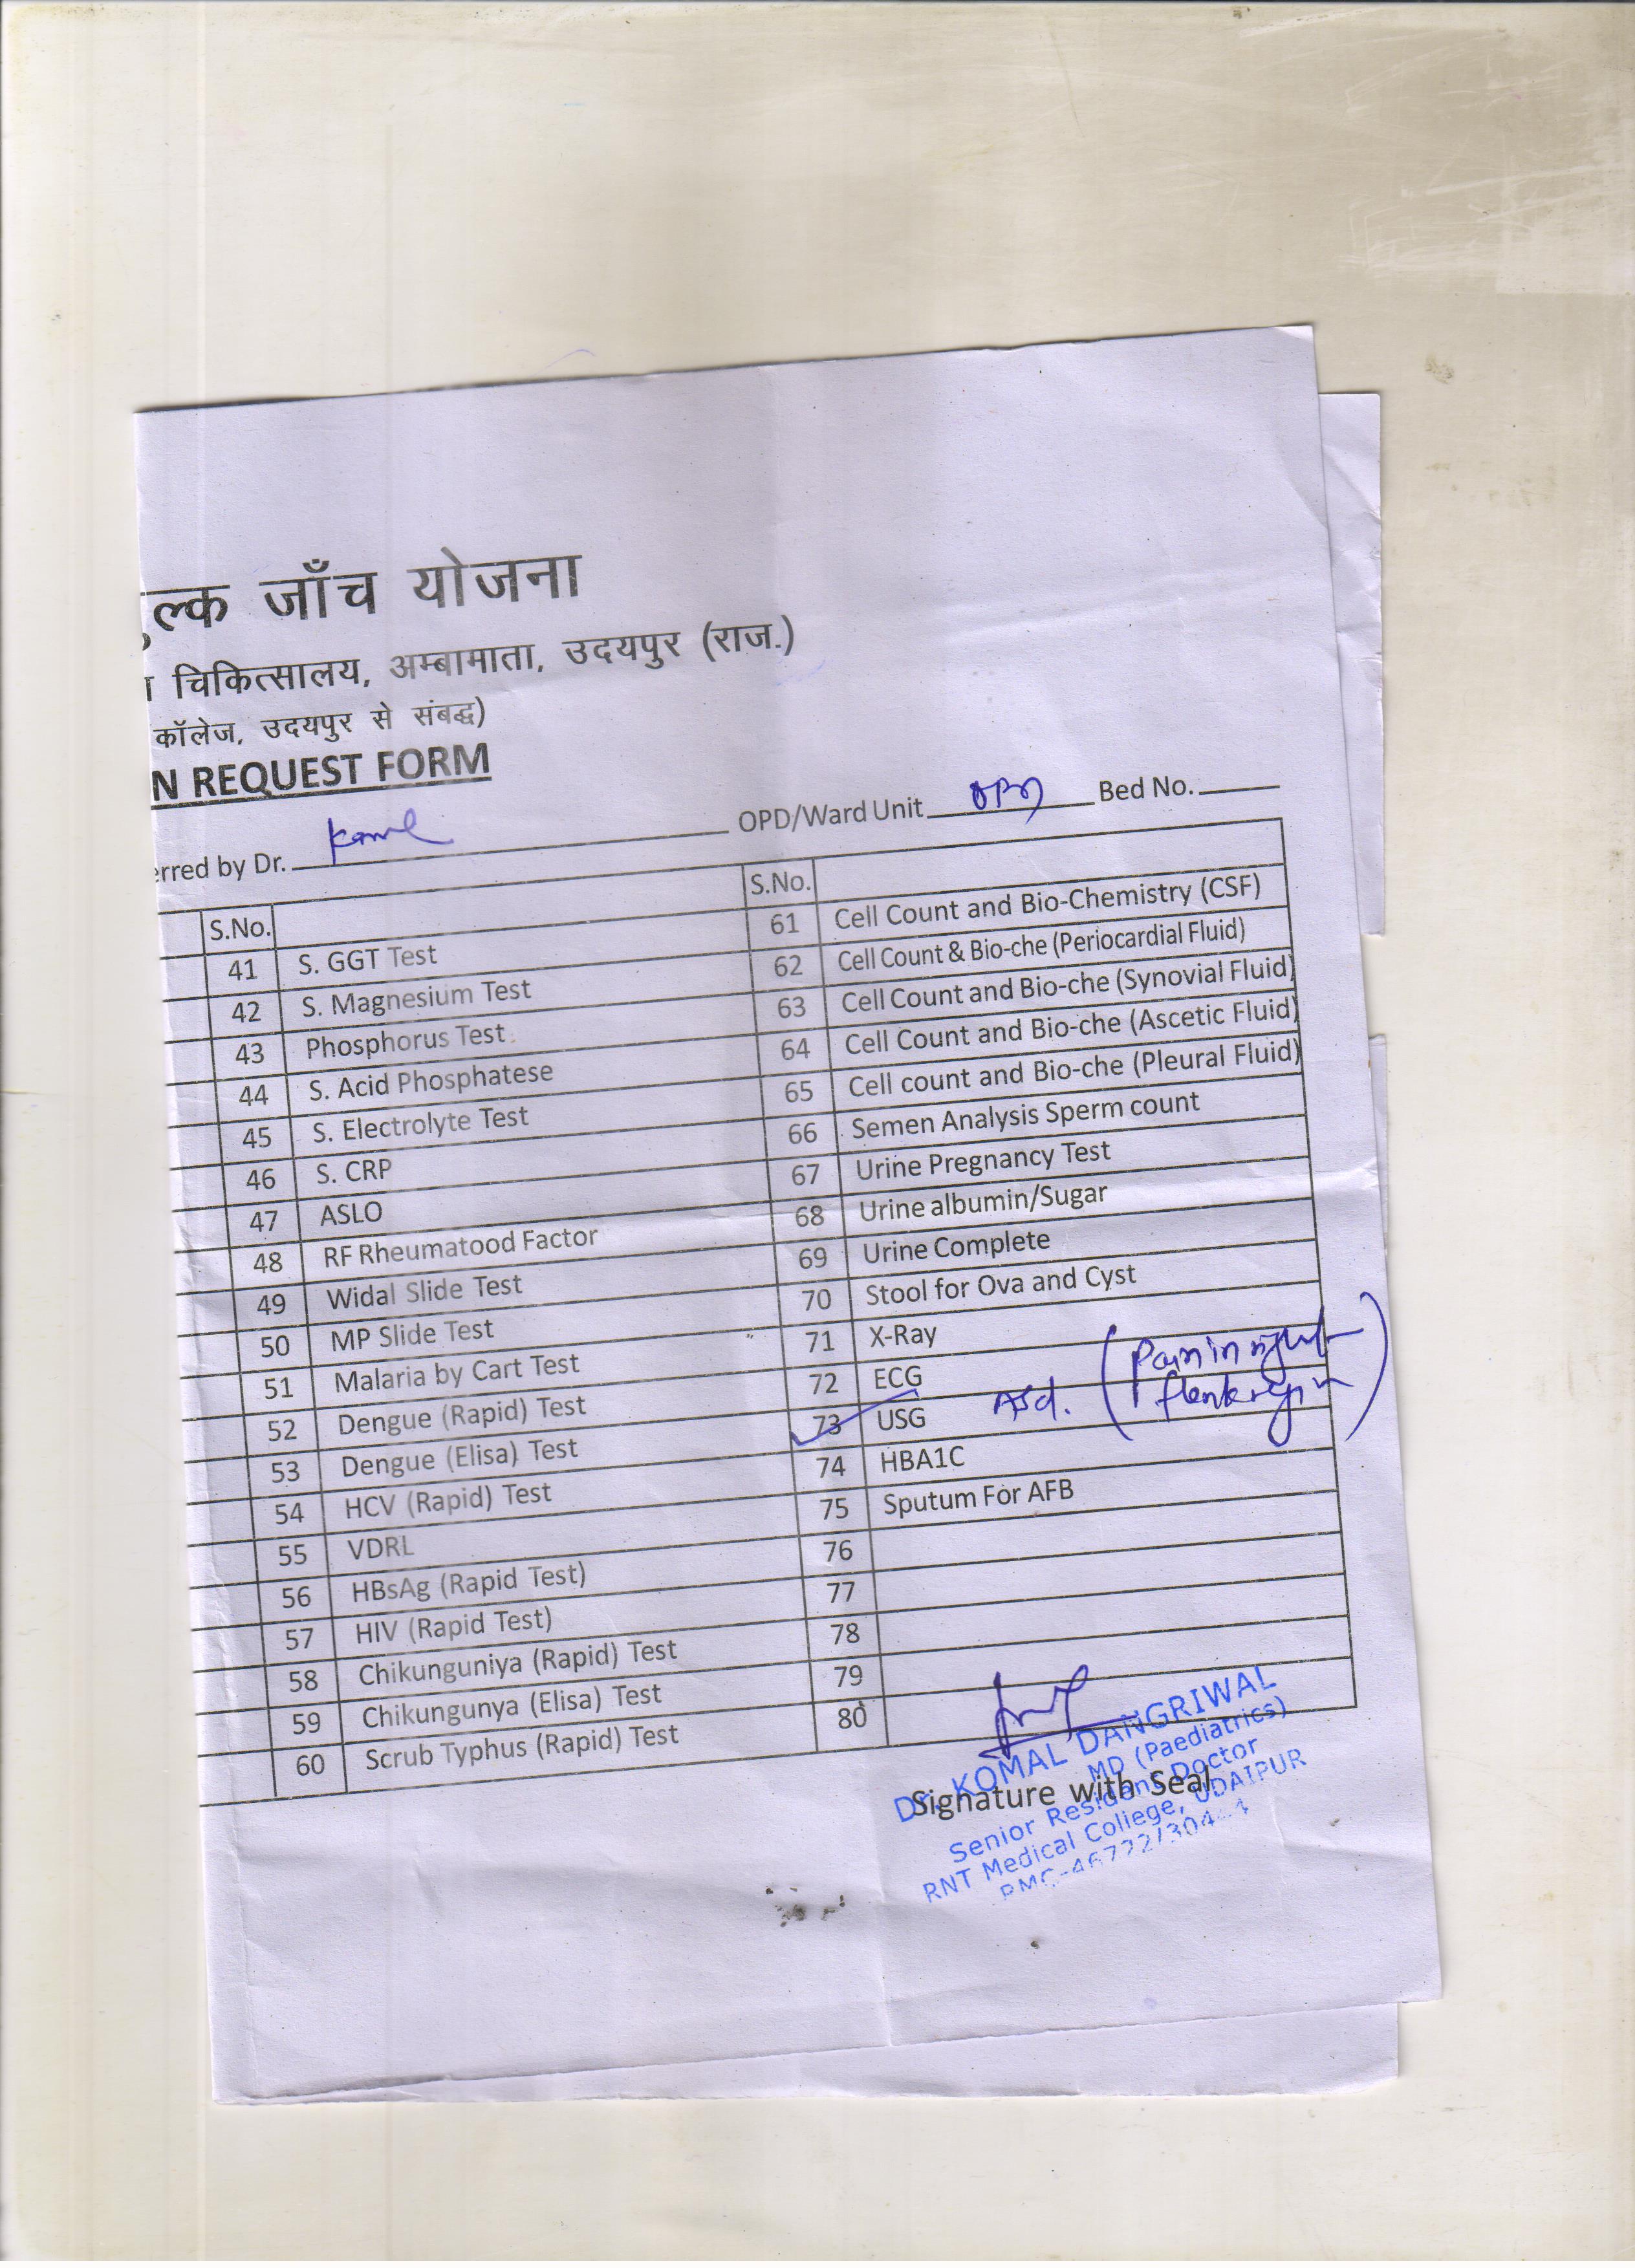 ुल्क जाँच योजना
चिकित्सालय, अम्बामाता, उदयपुर (राज.)
कॉलेज, उदयपुर से संबद्ध)
N REQUEST FORM
erred by Dr. Komal OPD/Ward Unit OPD Bed No.
S.No. S.No.
41 S. GGT Test 61 Cell Count and Bio-Chemistry (CSF)
42 S. Magnesium Test 62 Cell Count & Bio-che (Periocardial Fluid)
43 Phosphorus Test 63 Cell Count and Bio-che (Synovial Fluid)
44 S. Acid Phosphatese 64 Cell Count and Bio-che (Ascetic Fluid)
45 S. Electrolyte Test 65 Cell count and Bio-che (Pleural Fluid)
46 S. CRP 66 Semen Analysis Sperm count
47 ASLO 67 Urine Pregnancy Test
48 RF Rheumatood Factor 68 Urine albumin/Sugar
49 Widal Slide Test 69 Urine Complete
50 MP Slide Test 70 Stool for Ova and Cyst
51 Malaria by Cart Test 71 X-Ray
52 Dengue (Rapid) Test 72 ECG
53 Dengue (Elisa) Test 73 USG (Pain in right flank region)
54 HCV (Rapid) Test 74 HBA1C
55 VDRL 75 Sputum For AFB
56 HBsAg (Rapid Test) 76
57 HIV (Rapid Test) 77
58 Chikunguniya (Rapid) Test 78
59 Chikungunya (Elisa) Test 79
60 Scrub Typhus (Rapid) Test 80
Signature with Seal
Dr. KOMAL DANGRIWAL
MD (Paediatrics)
Senior Resident Doctor
RNT Medical College, UDAIPUR